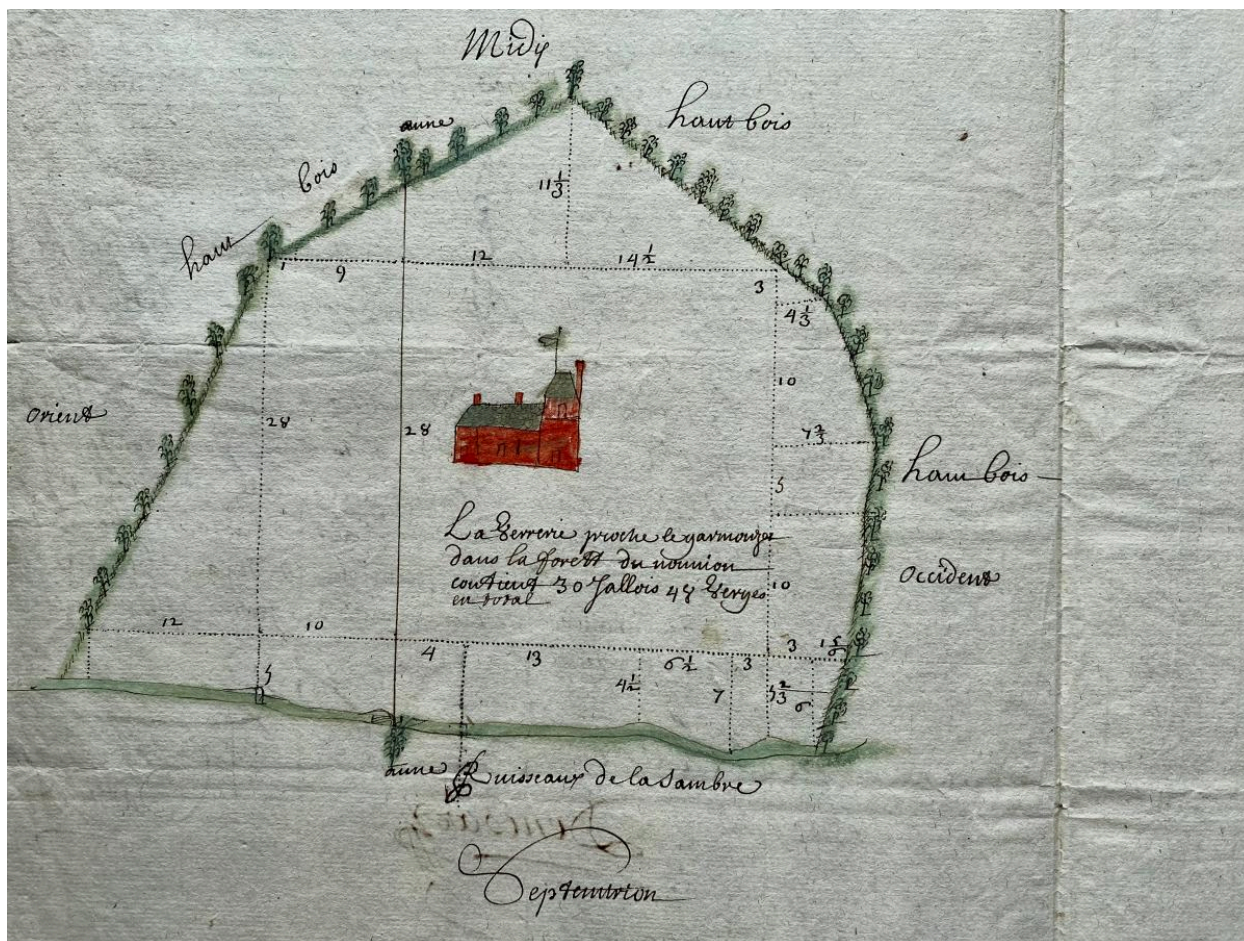 Midy
haut bois
aune
haut bois
11 1/3
9 12 14 1/2
3
4 1/3
10
orient
28 28
7 2/3
haut bois
5
La Verrerie proche le garmouzet
dans la forest du nouuion
contient 30 Jallois 48 Verges
en total
10
occident
12 10
4 13 6 1/2 3 3 1 5/6
5
4 1/2 7 5 2/3 6
aune
Ruisseaux de la Sambre
Septentrion